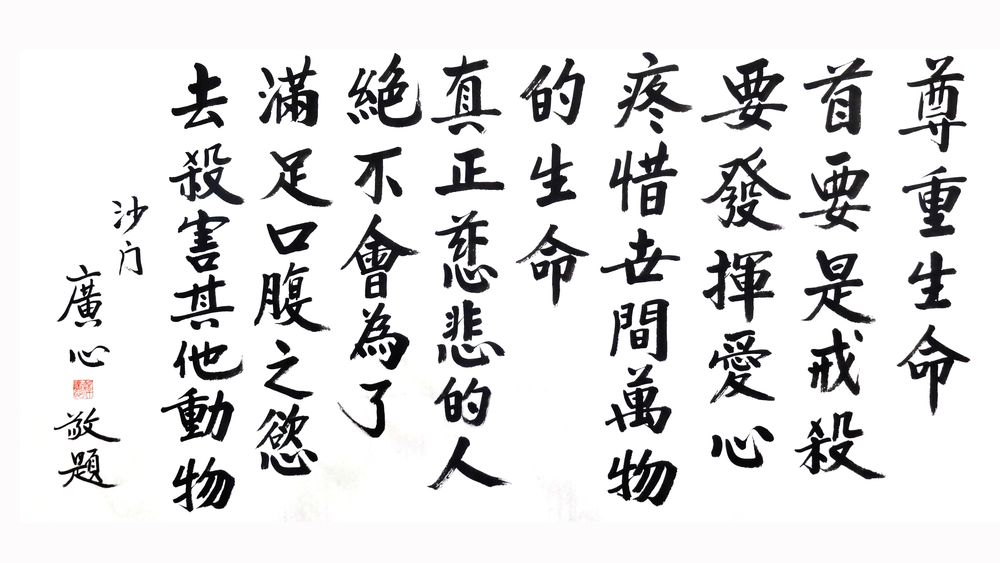 尊重生命
首要是戒殺
要發揮愛心
疼惜世間萬物
的生命
真正慈悲的人
絕不會為了
滿足口腹之慾
去殺害其他動物
沙门
廣心
敬題